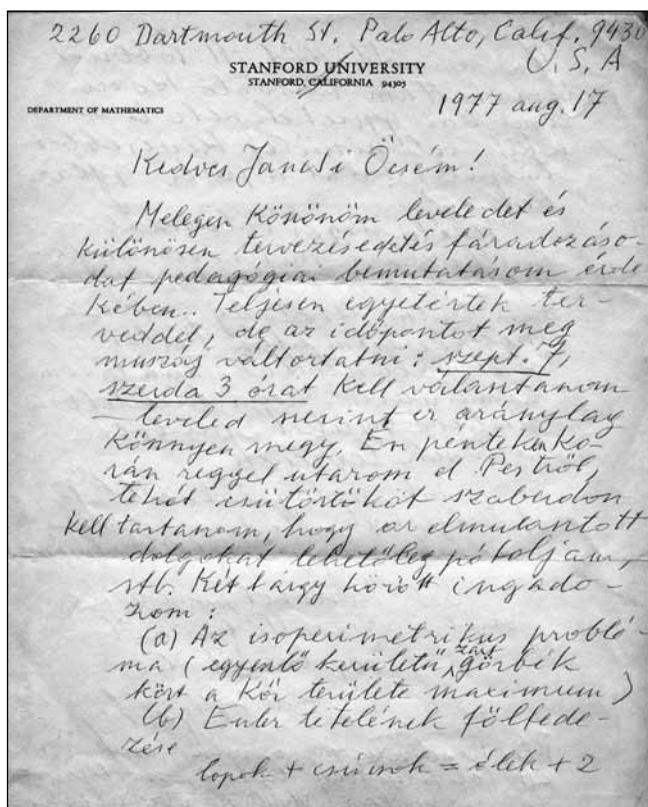 2260 Dartmouth St. Palo Alto, Calif. 9430
U.S.A
STANFORD UNIVERSITY
STANFORD, CALIFORNIA 94305
DEPARTMENT OF MATHEMATICS
1977 aug. 17
Kedves Jancsi Öcsém!
Melegen köszönöm leveledet és
különösen tervezésedet és fáradozáso-
dat pedagógiai bemutatásom érde
kében. Teljesen egyetértek ter-
veddel, de az időpontot meg
muszáj változtatni: szept. 7,
szerda 3 órát kell választanom
– leveled szerint ez aránylag
könnyen megy. Én pénteken ko-
rán reggel utazom el Pestről,
tehát csütörtököt szabadon
kell tartanom, hogy az elmulasztott
dolgokat lehetőleg pótoljam,
stb. Két tárgy között ingado-
zom:
(a) Az isoperimetrikus problé-
ma (egyenlő kerületű zárt görbék
közt a kör területe maximum)
(b) Euler tételének fölfede-
zése
lapok + csúcsok = élek + 2